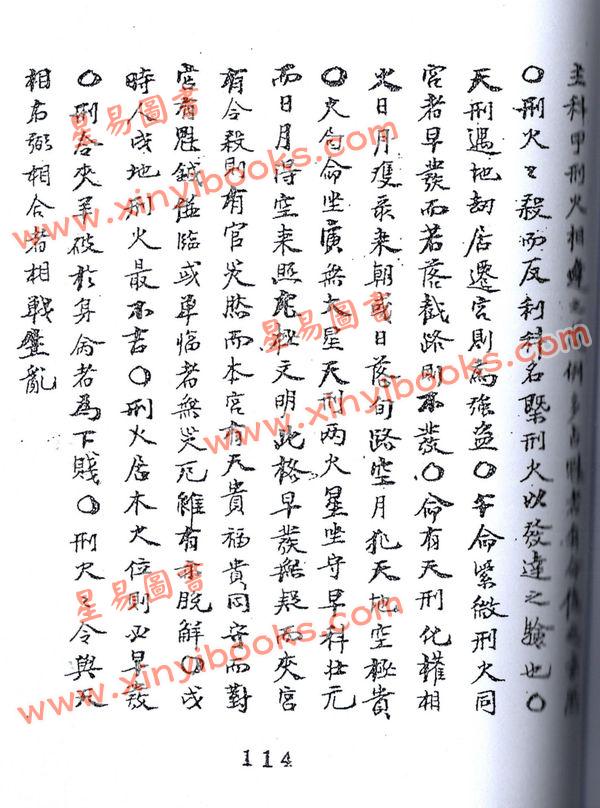 主科甲刑火相違
〇刑火之殺而反利科名 刑火 發達之驗也〇
天刑遇地劫居遷宮則為強盜〇午命紫微刑火同
宮者早發而若落截路則不發〇命有天刑化權相
火日月 來朝或日落旬路空月犯天地空極貴
〇火 命坐廣無大星天刑兩火星坐守早科壯元
而日月得空來照 極文明此格早發無疑而夾宮
有令殺則有官災然而本宮有天貴福貴同守而對
宮有魁鉞 臨或單臨者無災厄雖有亦脫解〇戌
時人戌地刑火最不吉〇刑火居木火位則必早發
〇刑合夾羊破於身命者為下賤〇刑火之令與天
相右弼相合者相戰 亂
114
星易圖書
www.xinyibooks.com
星易圖書
www.xinyibooks.com
星易圖書
www.xinyibooks.com